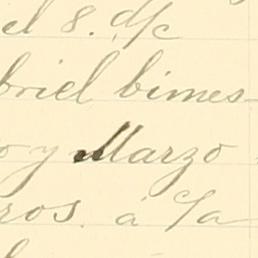 el 8. d/c
briel bimes-
o y Marzo
ros. á la